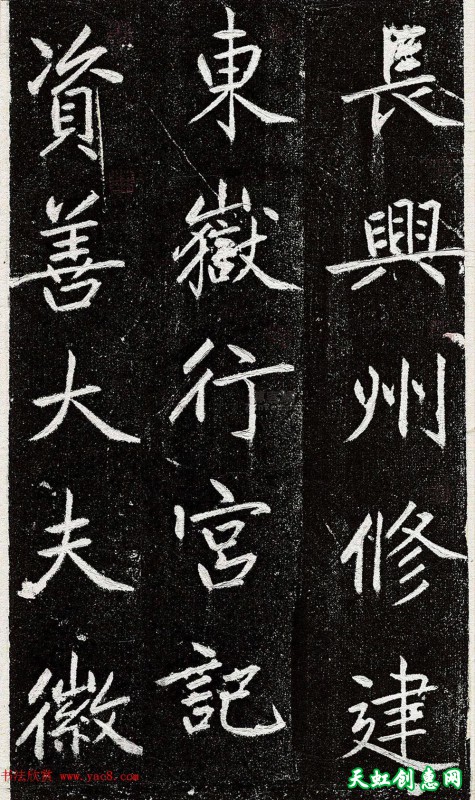 長興州修建
東嶽行宮記
資善大夫徽
书法欣赏 www.yac8.com
天虹创惠网